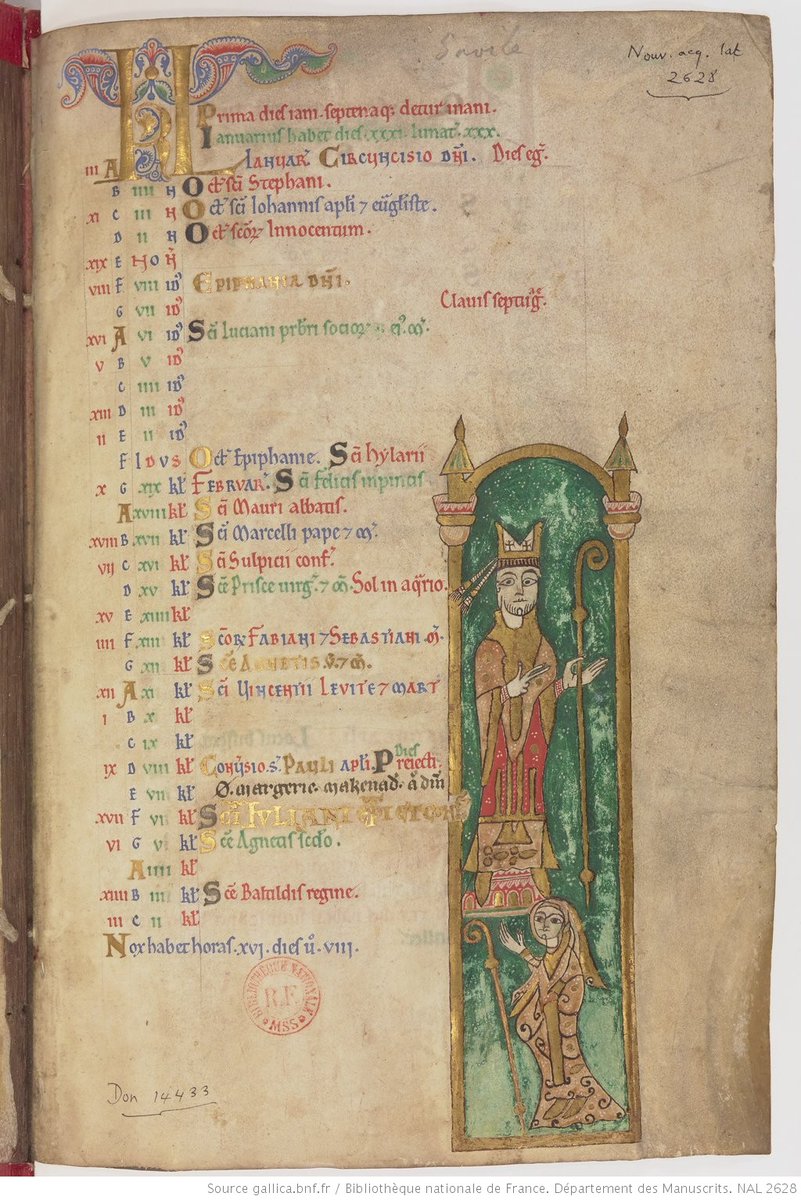 Savile
Nouv. acq. lat
2628
KL Prima dies iani. septenaq; detur inani.
Ianuarius habet dies .xxxi. lunat .xxx.
iii A IANUAR CIRCUNCISIO DNI. Dies eg.
B iiii N Oct sci Stephani.
xi C iii N Oct sci Iohannis apli ⁊ eugliste.
D ii N Oct scor Innocentum.
xix E NON
viii F viii id EPIPHANIA DNI.
G vii id Clavis septuag.
xvi A vi id Sci Luciani prbri socior
v B v id
C iiii id
xiii D iii id
ii E ii id
F IDVS Oct Epiphanie. Sci hylarii
x G xix kl FEBRUAR. Sci felicis inpincis
A xviii kl Sci Mauri abbatis.
xviii B xvii kl Sci Marcelli pape ⁊ m.
vii C xvi kl Sci Sulpicii conf.
D xv kl Sce Prisce uirg. ⁊ m. Sol in aqrio.
xv E xiiii kl
iiii F xiii kl Scor FABIANI ⁊ SEBASTIANI m.
G xii kl Sce AGNETIS v. ⁊ m.
xii A xi kl Sci VINCENTII LEVITE ⁊ MART
i B x kl
C ix kl
ix D viii kl Conusio s. PAULI apli. Preiecti. Dies
E vii kl O. margerie. makenad. a dni
xvii F vi kl Sci IULIANI
vi G v kl Sce Agnetis scdo.
A iiii kl
xiiii B iii kl Sce Batildis regine.
iii C ii kl
Nox habet horas .xvi. dies u. viii.
BIBLIOTHÈQUE NATIONALE
R.F.
MSS
Don 14433
Source gallica.bnf.fr / Bibliothèque nationale de France. Département des Manuscrits. NAL 2628